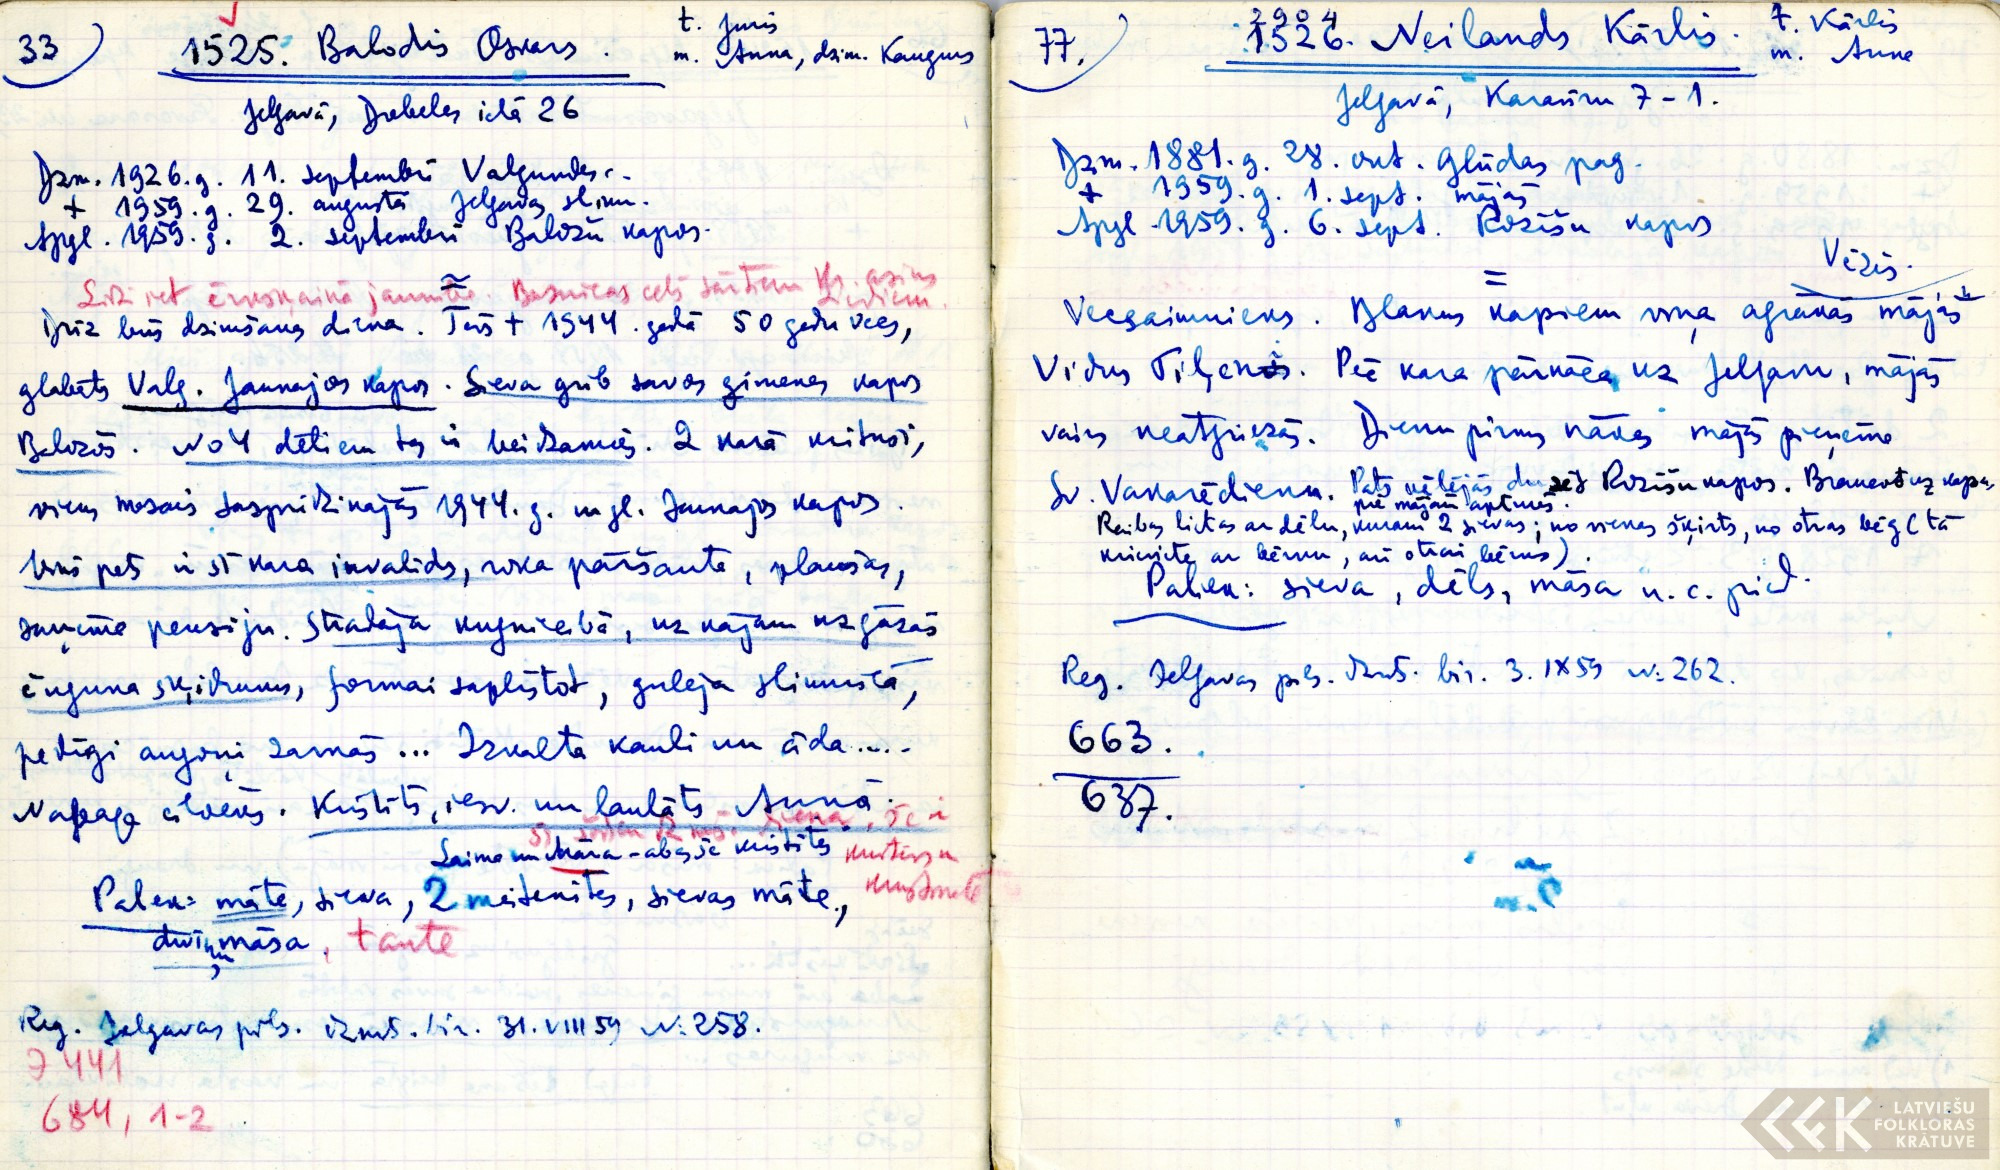 33
1525. Balodis Oskars.
t. Juris
m. Anna, dzim. Kaugurs
Jelgavā, Dobeles ielā 26
Dzm. 1926. g. 11. septembrī Valgundes
+ 1959. g. 29. augustā Jelgavas slimn.
Apgl. 1959. g. 2. septembrī Baložu kapos.
Līdzi iet ērkšķainā jaunība. Baznīcas ceļš sārtiem asins ziediem.
Drīz būs dzimšanas diena. Tēvs + 1944. gadā 50 gadu vecs,
glabāts Valg. Jaunajos kapos. Sieva grib savos ģimenes kapos
Baložos. No 4 dēliem tas ir beidzamais. 2 karā krituši,
viens mazais saspridzinājās 1944. g. un gl. Jaunajos kapos.
Viņš pats ir šī kara invalids, roka pāršauta, plaušas,
saņēma pensiju. Strādāja kugniecībā, uz kājām uzgāzās
čuguna šķidrums, formai saplīstot, gulēja slimnīcā,
pēdīgi augoņi zarnās ... Izkalta kauli un āda ....
Nabaga cilvēks. Kristīts, iesv. un laulāts Annā.
Laima un Māra - abas še kristītas
Paliek: māte, sieva, 2 meitenītes, sievas māte,
dvīņu māsa, tante
Reg. Jelgavas pils. dzmt. bir. 31. VIII 59 N: 258.
Э 441
684, 1-2
77.
2904
1526. Neilands Kārlis.
t. Kārlis
m. Anna
Jelgavā, Kazarmu 7-1.
Dzm. 1881. g. 28. okt. Glūdas pag.
+ 1959. g. 1. sept. mājās
Apgl. 1959. g. 6. sept. Rozīšu kapos
Vēzis.
Vecsaimnieks. Blakus kapiem viņa agrākās mājas
Vidus Tiļļenās. Pēc kara pārnāca uz Jelgavu, mājās
vairs neatgriezās. Dienu pirms nāves mājās pieņēma
Sv. Vakarēdienu. Pats vēlējās dusēt Rozīšu kapos. Braucot uz kapiem,
pie mājām apturēs.
Raibas lietas ar dēlu, kuram 2 sievas; no vienas šķirts, no otras bēg (tā
krieviete ar bērnu, arī otrai bērns).
Paliek: sieva, dēls, māsa u. c. pied.
Reg. Jelgavas pils. dzmt. bir. 3. IX 59 N: 262.
663.
637.
LATVIEŠU
FOLKLORAS
KRĀTUVE